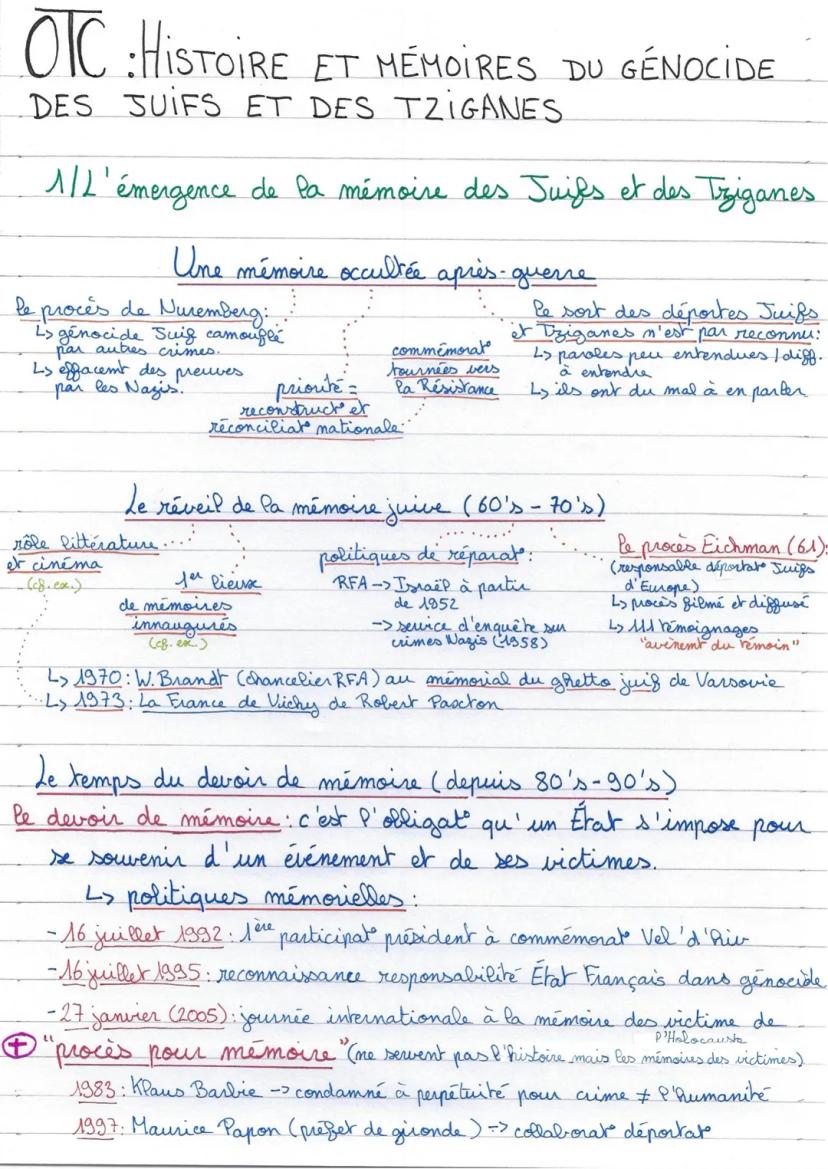 OTC : HISTOIRE ET MÉMOIRES DU GÉNOCIDE
DES JUIFS ET DES TZIGANES
1/ L'émergence de la mémoire des Juifs et des Tziganes
Une mémoire occultée après-guerre
le procès de Nuremberg :
↳ génocide Juif camouflé
par autres crimes.
↳ effacent des preuves
par les Nazis.
priorité =
reconstruct° et
réconciliat° nationale
commémorat°
tournées vers
la Résistance
le sort des déportés Juifs
et Tziganes n'est par reconnu :
↳ paroles peu entendues / diff.
à entendre
↳ ils ont du mal à en parler
Le réveil de la mémoire juive (60's - 70's)
rôle littérature
et cinéma
(cf. ex.)
1er lieux
de mémoires
innaugurés
(cf. ex.)
politiques de réparat° :
RFA → Israël à partir
de 1952
→ service d'enquête sur
crimes Nazis (-1958)
le procès Eichman (61) :
(responsable déportat° Juifs
d'Europe)
↳ procès filmé et diffusé
↳ 111 témoignages
"avènemt du témoin"
↳ 1970 : W. Brandt (chancelier RFA) au mémorial du ghetto juif de Varsovie
↳ 1973 : La France de Vichy de Robert Paxton
Le temps du devoir de mémoire (depuis 80's - 90's)
le devoir de mémoire : c'est l'obligat° qu'un État s'impose pour
se souvenir d'un événement et de ses victimes.
↳ politiques mémorielles :
- 16 juillet 1992 : 1ère participat° président à commémorat° Vel'd'Hiv
- 16 juillet 1995 : reconnaissance responsabilité État Français dans génocide
- 27 janvier (2005) : journée internationale à la mémoire des victime de
l'Holocauste
+ "procès pour mémoire" (ne servent pas l'histoire mais les mémoires des victimes)
1983 : Klaus Barbie → condamné à perpétuité pour crime ≠ l'humanité
1997 : Maurice Papon (préfet de gironde) → collaborat° déportat°